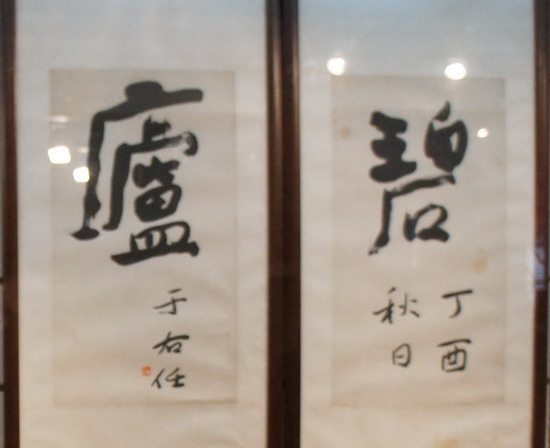 碧
丁酉
秋日
廬
于右任